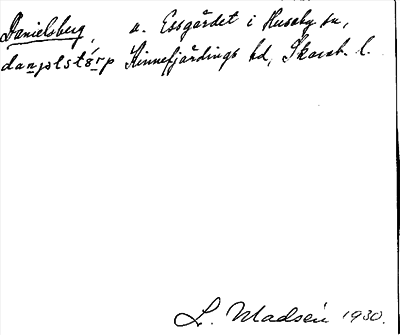 Danielsberg, u. Essgärdet i Husaby sn,
danjəlstö́rp Kinnefjärdings hd, Skarab. l.
L. Madsén 1930.